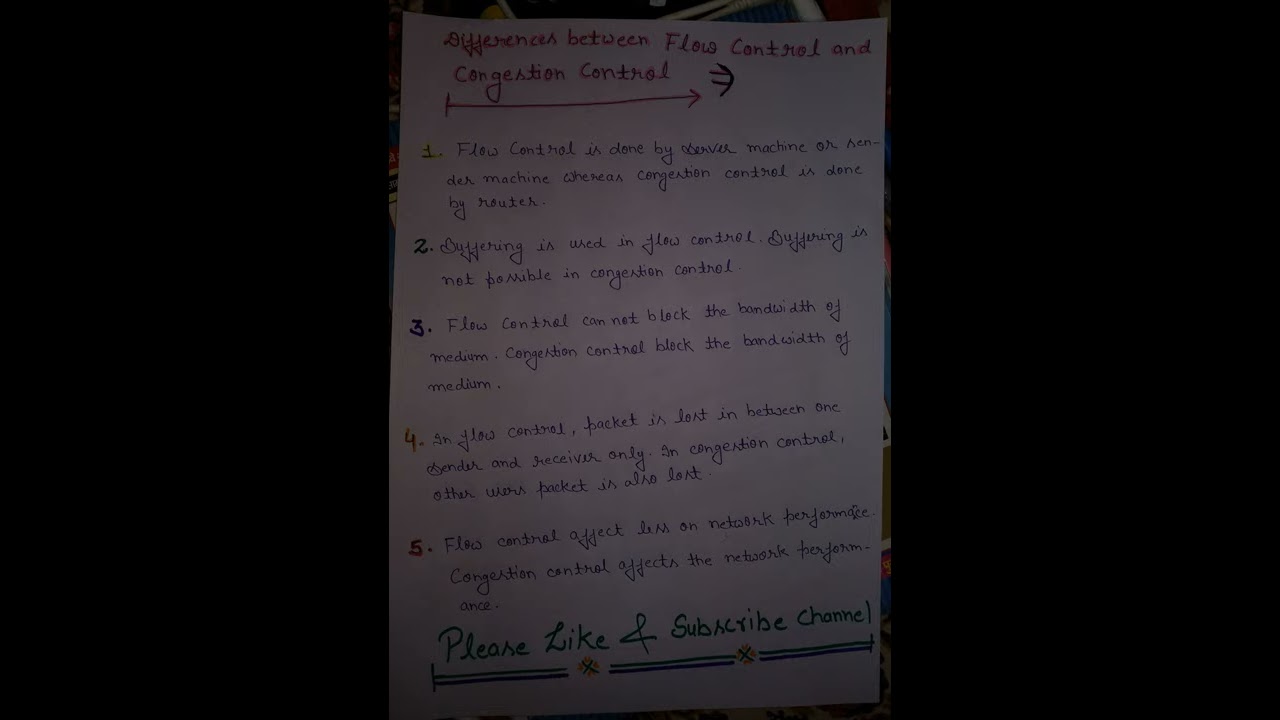 Differences between Flow Control and
Congestion Control ⇒
1. Flow Control is done by Server machine or sen-
der machine whereas congestion control is done
by router.
2. Buffering is used in flow control. Buffering is
not possible in congestion control.
3. Flow Control can not block the bandwidth of
medium. Congestion control block the bandwidth of
medium.
4. In flow control, packet is lost in between one
sender and receiver only. In congestion control,
other users packet is also lost.
5. Flow control affect less on network performance.
Congestion control affects the network perform-
ance.
Please Like & Subscribe Channel